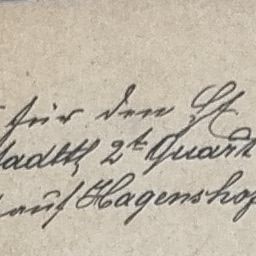 für den St
stadtth 2t Quart
auf Hagenshof